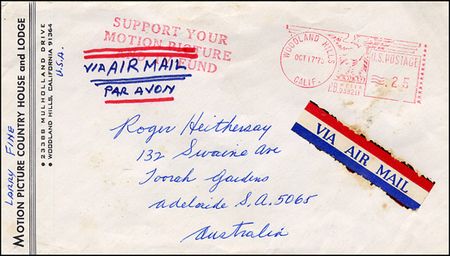 Larry Fine
MOTION PICTURE COUNTRY HOUSE and LODGE
• 23388 MULHOLLAND DRIVE
• WOODLAND HILLS, CALIFORNIA 91364
U.S.A.
SUPPORT YOUR
MOTION PICTURE
FUND
VIA AIR MAIL
PAR AVON
WOODLAND HILLS
OCT 17
CALIF.
U.S. POSTAGE
.25
Roger Heithersay
132 Swaine Ave
Toorah Gardens
Adelaide S.A. 5065
Australia
VIA AIR MAIL